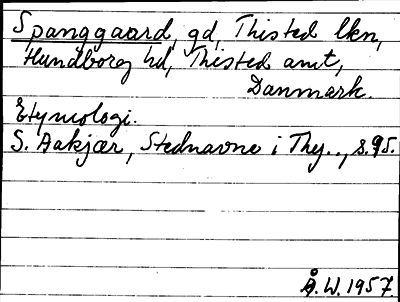 Spanggaard, gd, Thisted lkn,
Hundborg hd, Thisted amt,
Danmark.
Etymologi.
S. Aakjær, Stednavne i Thy.., s.95.
Å.W.1957.